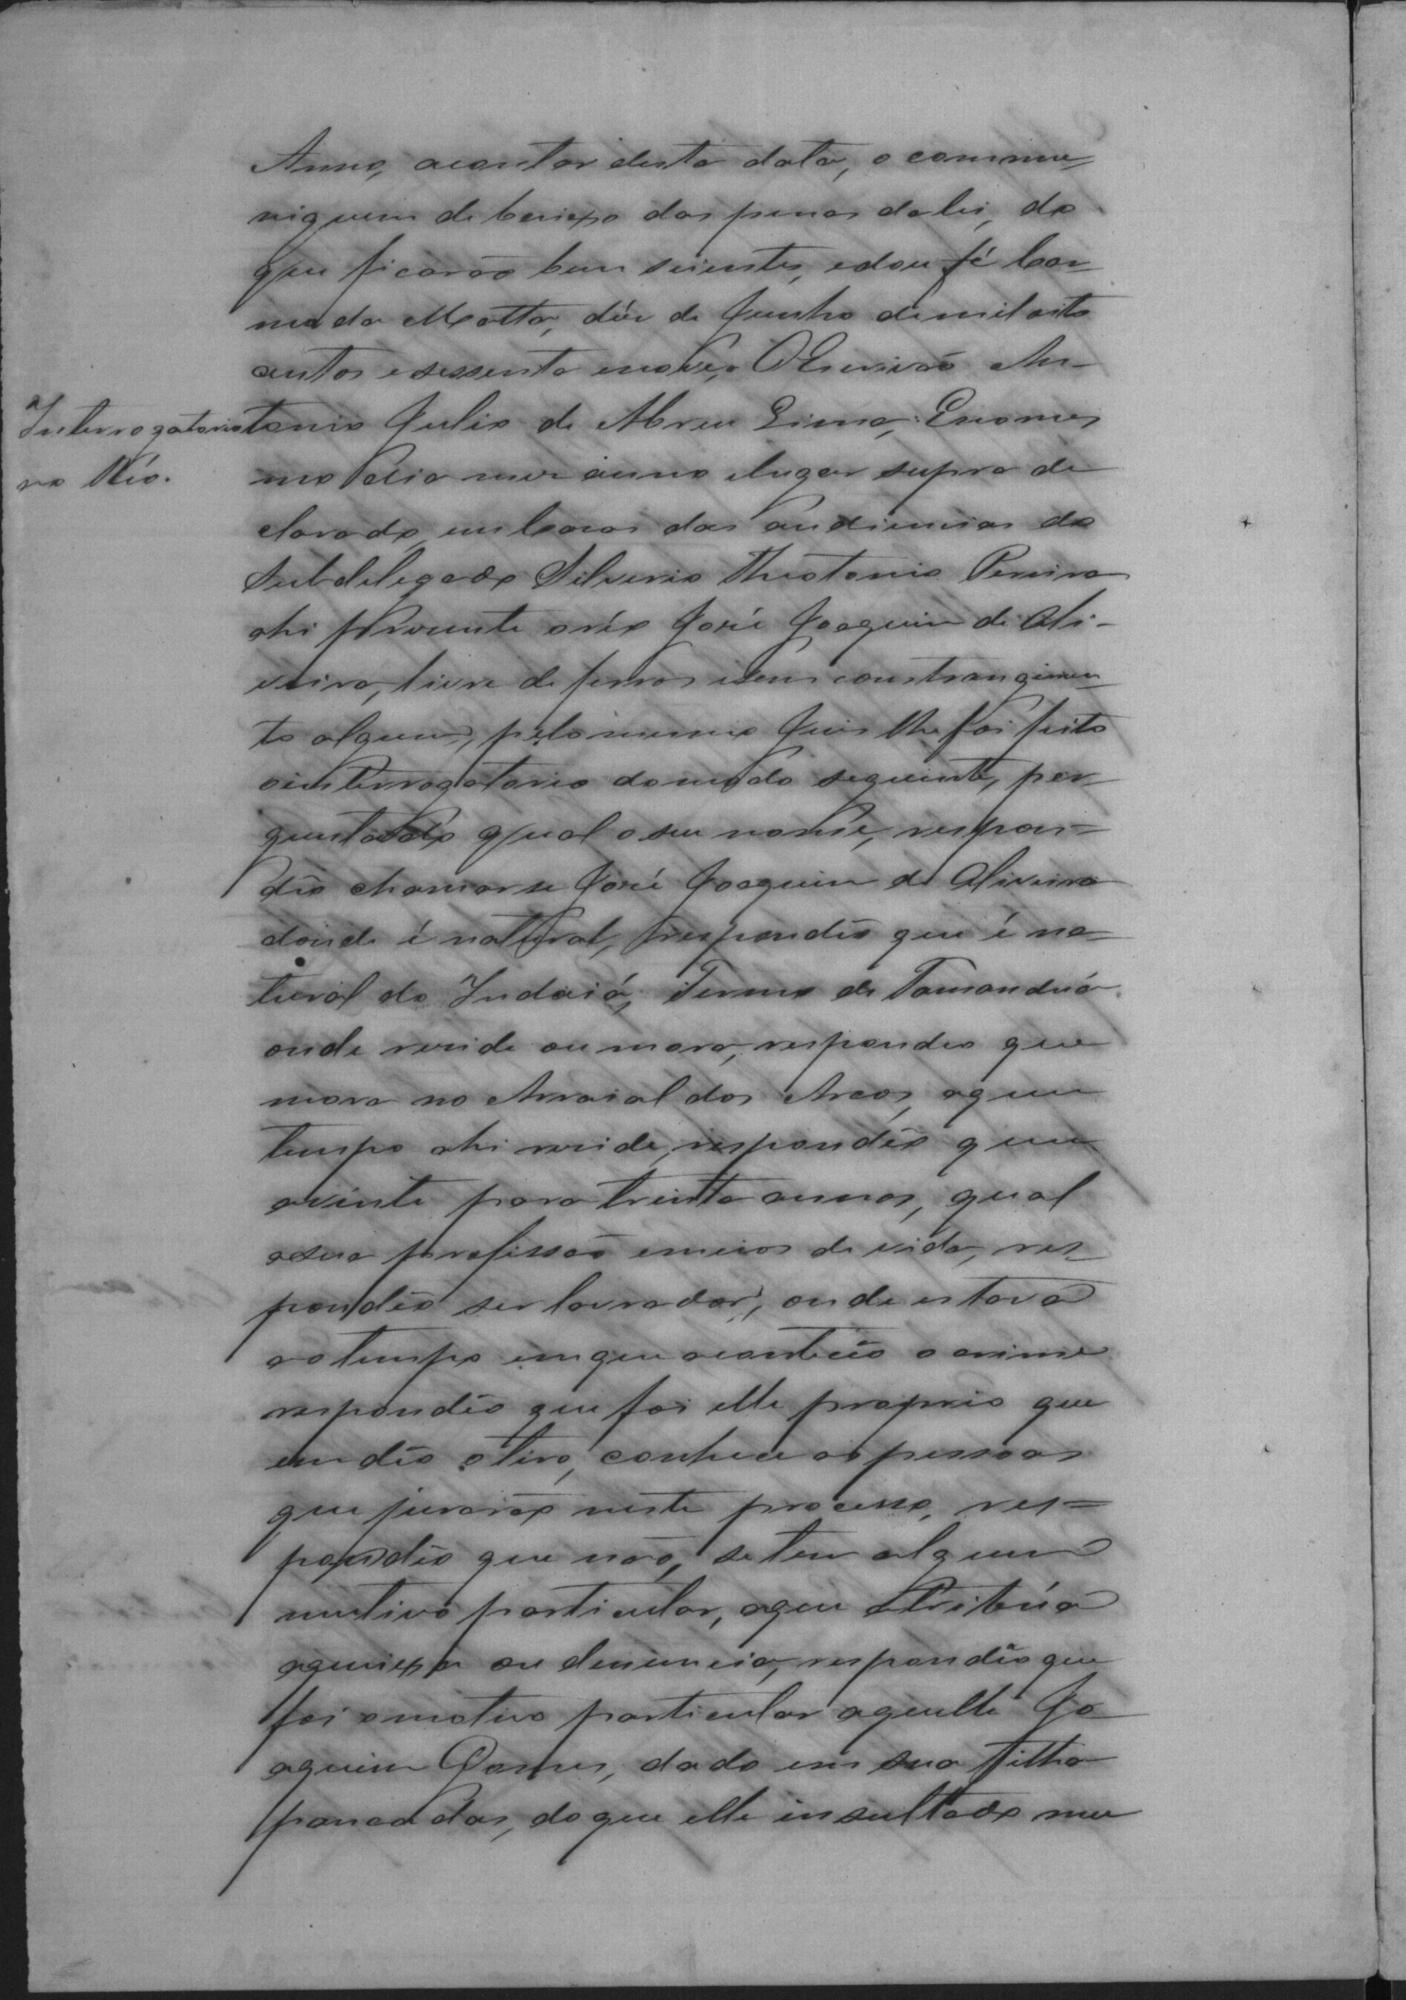 Anno, acontar desta data, o commu-
niquem debaixo das penas da lei, do
que ficarão bem scientes, e dou fé Car-
mo da Matta, déz de Junho de mil oito
centos e sessenta e nove, O Escrivão An-
Interrogatorio
ao Réo.
tonio Julio de Abreu Lima, E no mes
mo dia mez anno e lugar supra de
clarado, em Casas das audiencias do
Subdelegado Silverio Theotonio Pereira
ahi prezente o réo José Joaquim de Oli-
veira, livre de ferros e sem constrangimen-
to algum, pelo mesmo Juis lhe foi feito
o interrogatorio do modo seguinte, per-
guntado qual o seu nome, respon-
dêo chamarse José Joaquim de Oliveira
donde é natural, respondêo que é na-
tural do Indaiá, Termo de Tamanduá
onde reside ou mora, respondeo que
mora no Arraial dos Arcos, a que
tempo ahi reside, respondêo que
a vinte para trinta annos, qual
a sua profissão e meios de vida, res-
pondêo ser lavrador, onde estava
ao tempo em que acontecêo o crime
respondêo que foi elle proprio que
deo o tiro, conhece as pessoas
que jurarão neste processo, res-
pondêo que não, se tem algum
motivo particular, a que atribúa
a queixa ou denuncia, respondêo que
foi o motivo particular aquelle Jo
aquim Gomes, dado em sua filha
pancadas, do que elle insultado me